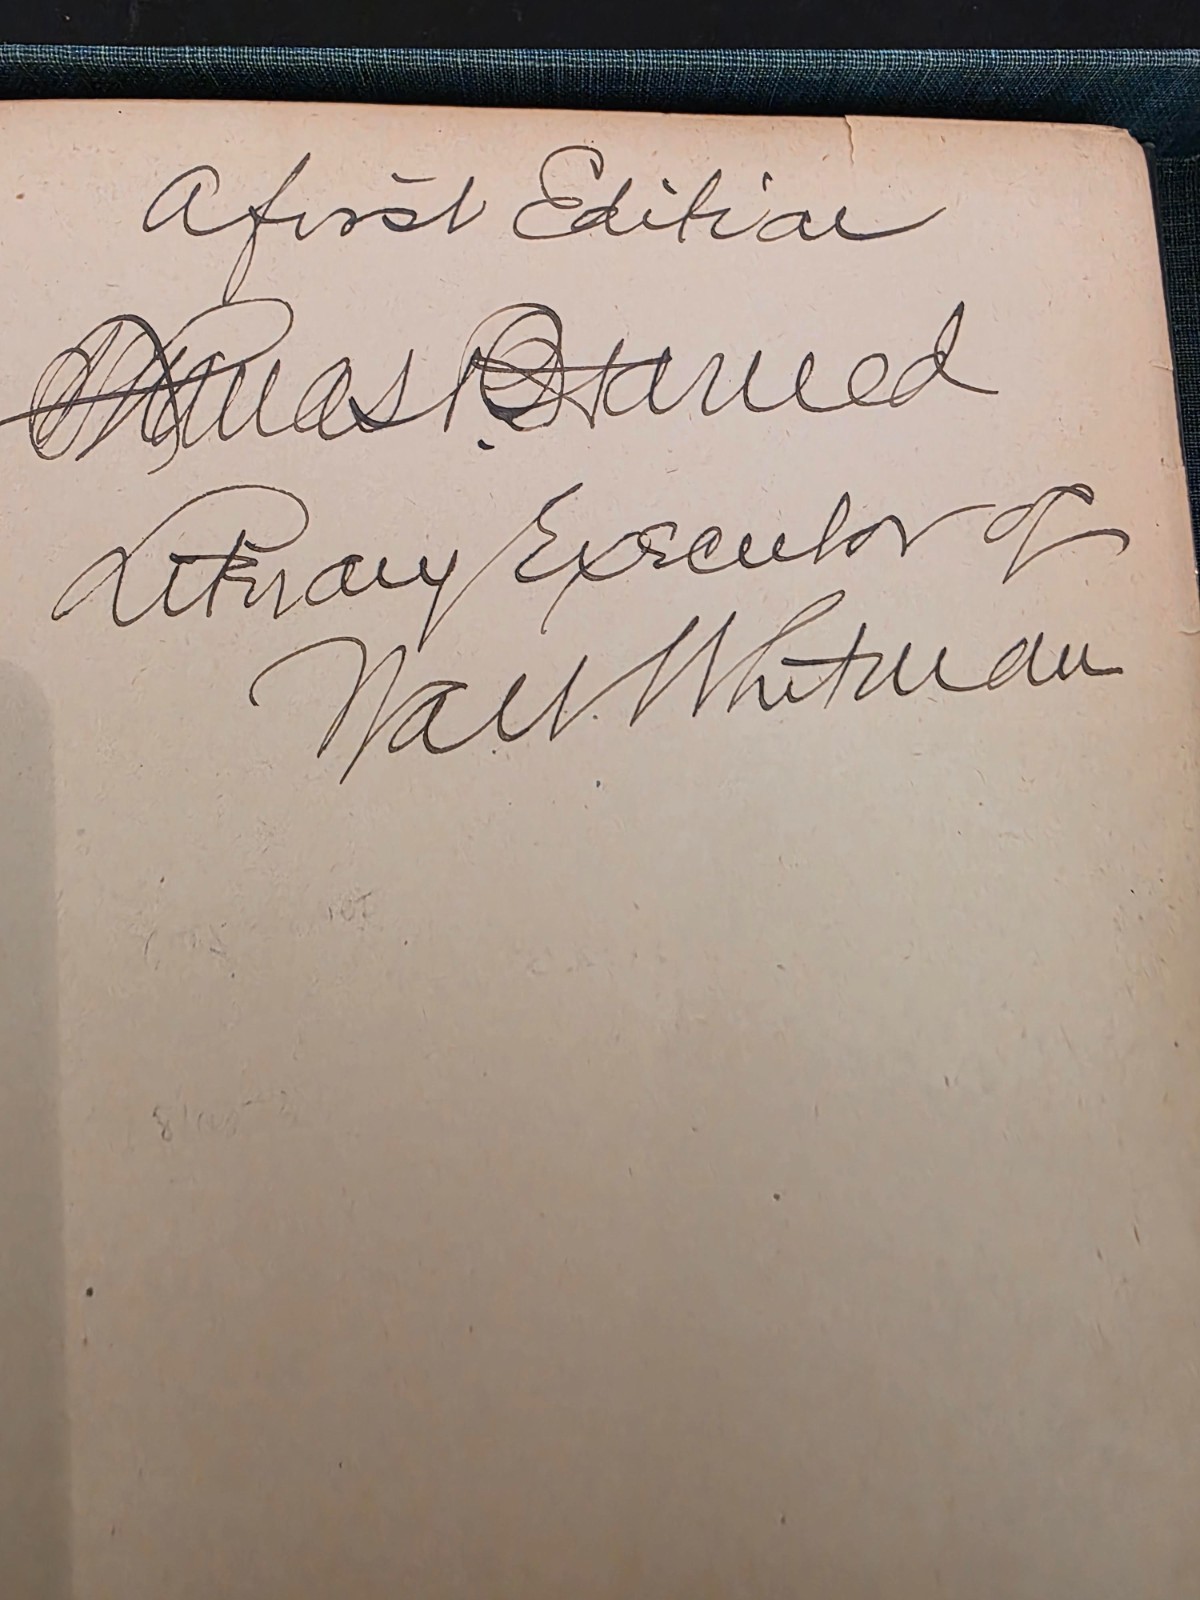 A first Edition
Thomas B. Harned
Literary Executor of
Walt Whitman